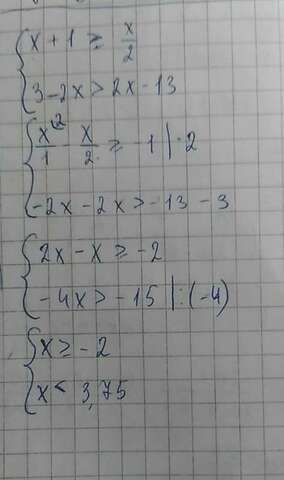 { x + 1 ≥ x/2
3 - 2x > 2x - 13
{ x^(2/1 - x/2 ≥ -1 | · 2
-2x - 2x > -13 - 3
{ 2x - x ≥ -2
-4x > -15 | : (-4)
{ x ≥ -2
x < 3,75